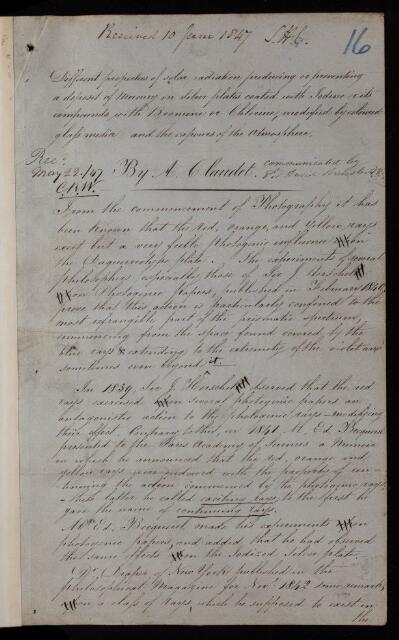 Received 10 June 1847 S.H.C.
16
Different properties of solar radiation producing or preventing
a deposit of Mercury on silver plates coated with Iodine or its
compounds with Bromine or Chlorine, modified by coloured
glass media and the vapours of the Atmosphere.
Rec:
May 22/47
By A. Claudet. communicated by
Sir David Brewster
From the commencement of Photography it has
been known that the red, orange, and yellow rays
exert but a very feeble photogenic influence on
the Daguerreotype plate. The experiments of several
Philosophers especially those of Sir J. Herschel
on Photogenic Papers, published in February 1840,
prove that this action is particularly confined to the
most refrangible part of the prismatic spectrum,
commencing from the space found covered by the
blue rays & extending to the extremity of the violet and
sometimes even beyond it.
In 1839, Sir J. Herschel observed that the red
rays exercised on several photogenic papers an
antagonistic action to the photogenic rays modifying
their effect. Contrary to this, in 1841 M. Ed. Becquerel
presented to the Paris Academy of Sciences a Memoir
in which he announced that the red, orange and
yellow rays were endowed with the property of con-
tinuing the action commenced by the photogenic rays.
these latter he called exciting rays, to the first he
gave the name of continuing rays.
Mr. Ed. Becquerel made his experiments on
photogenic papers, and added that he had observed
the same effects on the Iodized Silver plate.
Dr. Draper of New York published in the
Philosophical Magazine for Novr. 1842 some remarks
on a class of rays, which he supposed to exist in
the